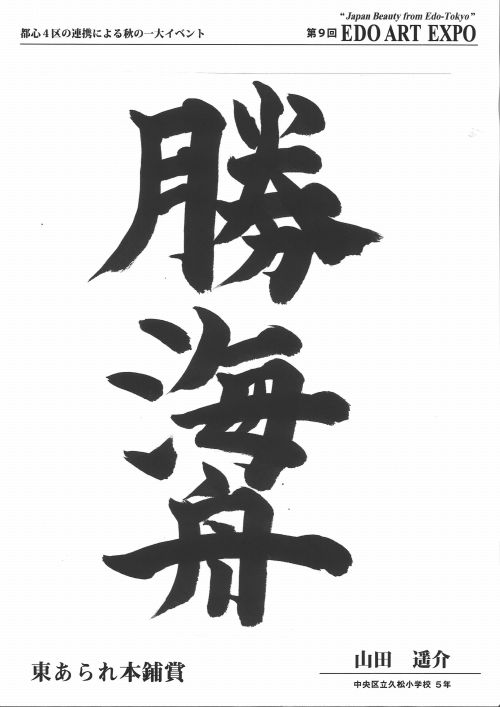 都心4区の連携による秋の一大イベント
“Japan Beauty from Edo-Tokyo”
第9回 EDO ART EXPO
勝海舟
東あられ本鋪賞
山田 遥介
中央区立久松小学校 5年